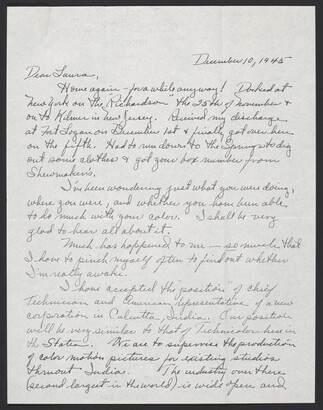 December 10, 1945
Dear Laura,
Home again - for a while anyway! Docked at
New York on the "Richardson" the 25th of November &
on to Kilmer in New Jersey. Received my discharge
at Fort Logan on December 1st & finally got over here
on the fifth. Had to run down to the Springs to dig
out some clothes & got your box number from
Shewmakers.
I've been wondering just what you were doing,
where you were, and whether you have been able
to do much with your color. I shall be very
glad to hear all about it.
Much has happened to me — so much that
I have to pinch myself often to find out whether
I'm really awake.
I have accepted the position of Chief
Technician and American representative of a new
corporation in Calcutta, India. Our position
will be very similar to that of Technicolor here in
the States. We are to supervise the production
of color motion pictures for existing studios
thruout India. The industry over there
(second largest in the world) is wide open and